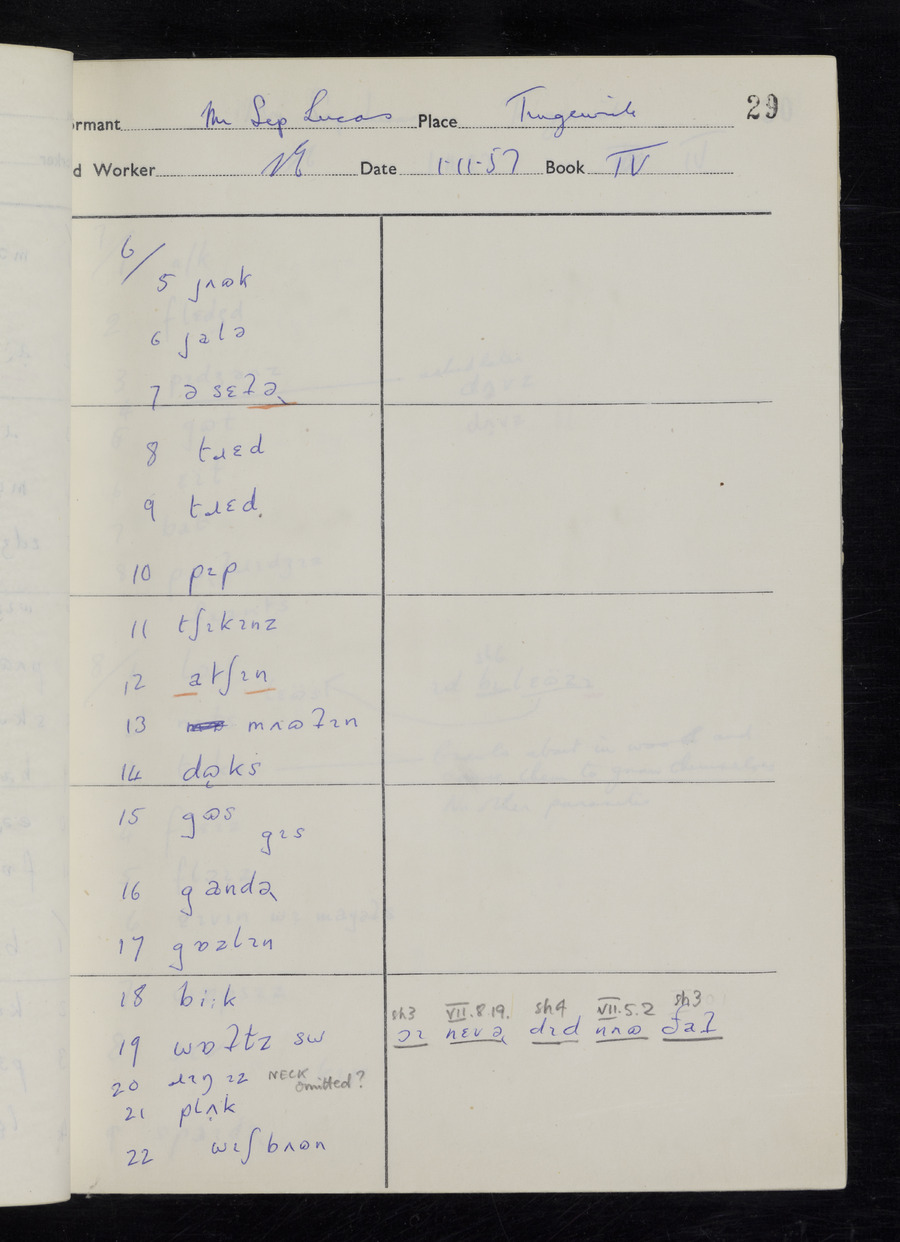 ormant Mr Sep Lucas Place Tingewick 29
d Worker Date 1·11·57 Book IV
6/
5 jʌɷk
6 jalə
7 ə sɛɫə˞
8 tɹɛd
9 tɹɛd̩
10 pɪp
11 tʃɪkɪnz
12 atʃɪn
13 mʌɷɫɪn
14 dɷ̣ks
15 gɷs
gɪs
16 gandə˞
17 gɒzlɪn
18 bi:k
19 wɒɫtz sw
20 ɹɪŋ ɪz NECK omitted?
21 plʌ̣k
22 wɪʃbʌɷn
sh3 VII.8.19. sh4 VII.5.2 sh3
ɔɪ nɛvə˞ dɪd nʌɷ ðaɫ